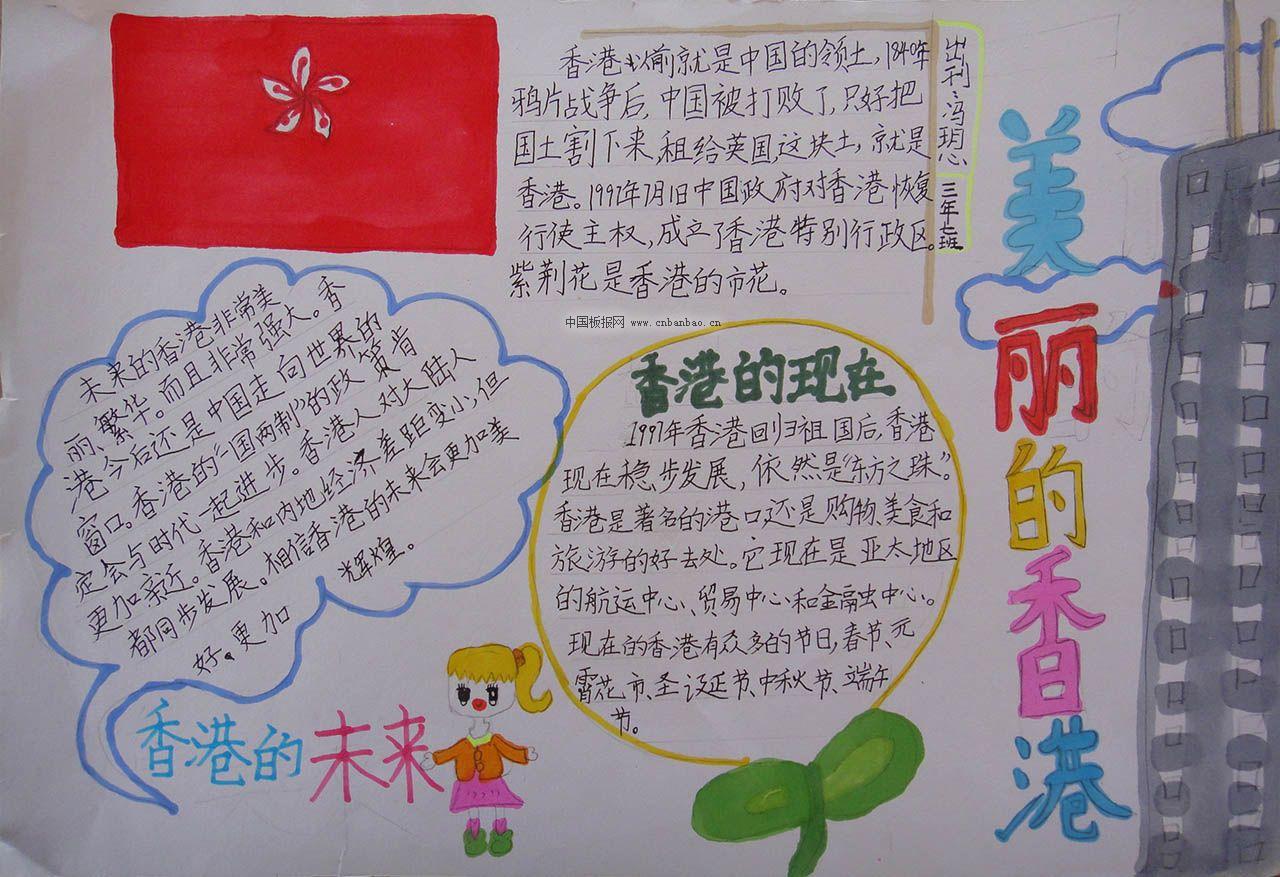 香港以前就是中国的领土，1840年
鸦片战争后，中国被打败了，只好把
国土割下来，租给英国，这块土，就是
香港。1997年7月1日中国政府对香港恢复
行使主权，成立了香港特别行政区。
紫荆花是香港的市花。
出刊：冯玥心
三年七班
美丽的香港
中国板报网 www.cnbanbao.cn
香港的现在
1997年香港回归祖国后，香港
现在稳步发展，依然是“东方之珠”。
香港是著名的港口，还是购物、美食和
旅游的好去处。它现在是亚太地区
的航运中心、贸易中心和金融中心。
现在的香港有众多的节日，春节、元
霄花市、圣诞节、中秋节、端午
节。
未来的香港非常美
丽、繁华。而且非常强大。香
港今后还是中国走向世界的
窗口。香港的“一国两制”的政策肯
定会与时代一起进步。香港人对大陆人
更加亲近。香港和内地经济差距变小，但
都同步发展。相信香港的未来会更加美
好。更加
辉煌。
香港的未来